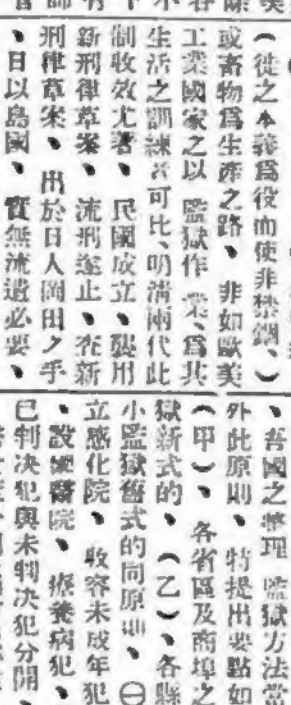 (徒之本義爲役而使非禁錮、)
或畜物爲生產之路、非如歐美
工業國家之以監獄作業、爲其
生活之訓練者可比、明清兩代此
制收效尤著、民國成立、襲用
新刑律草案、流刑遂止、查新
刑律草案、出於日人岡田之手
、日以島國、實無流遣必要、
、吾國之整理監獄方法當
外此原則、特提出要點如
(甲)、各省區及商埠之
獄新式的、(乙)、各縣
小監獄舊式的同原則、㊀
立感化院、收容未成年犯
、設醫院、療養病犯、
已判决犯與未判决犯分開、